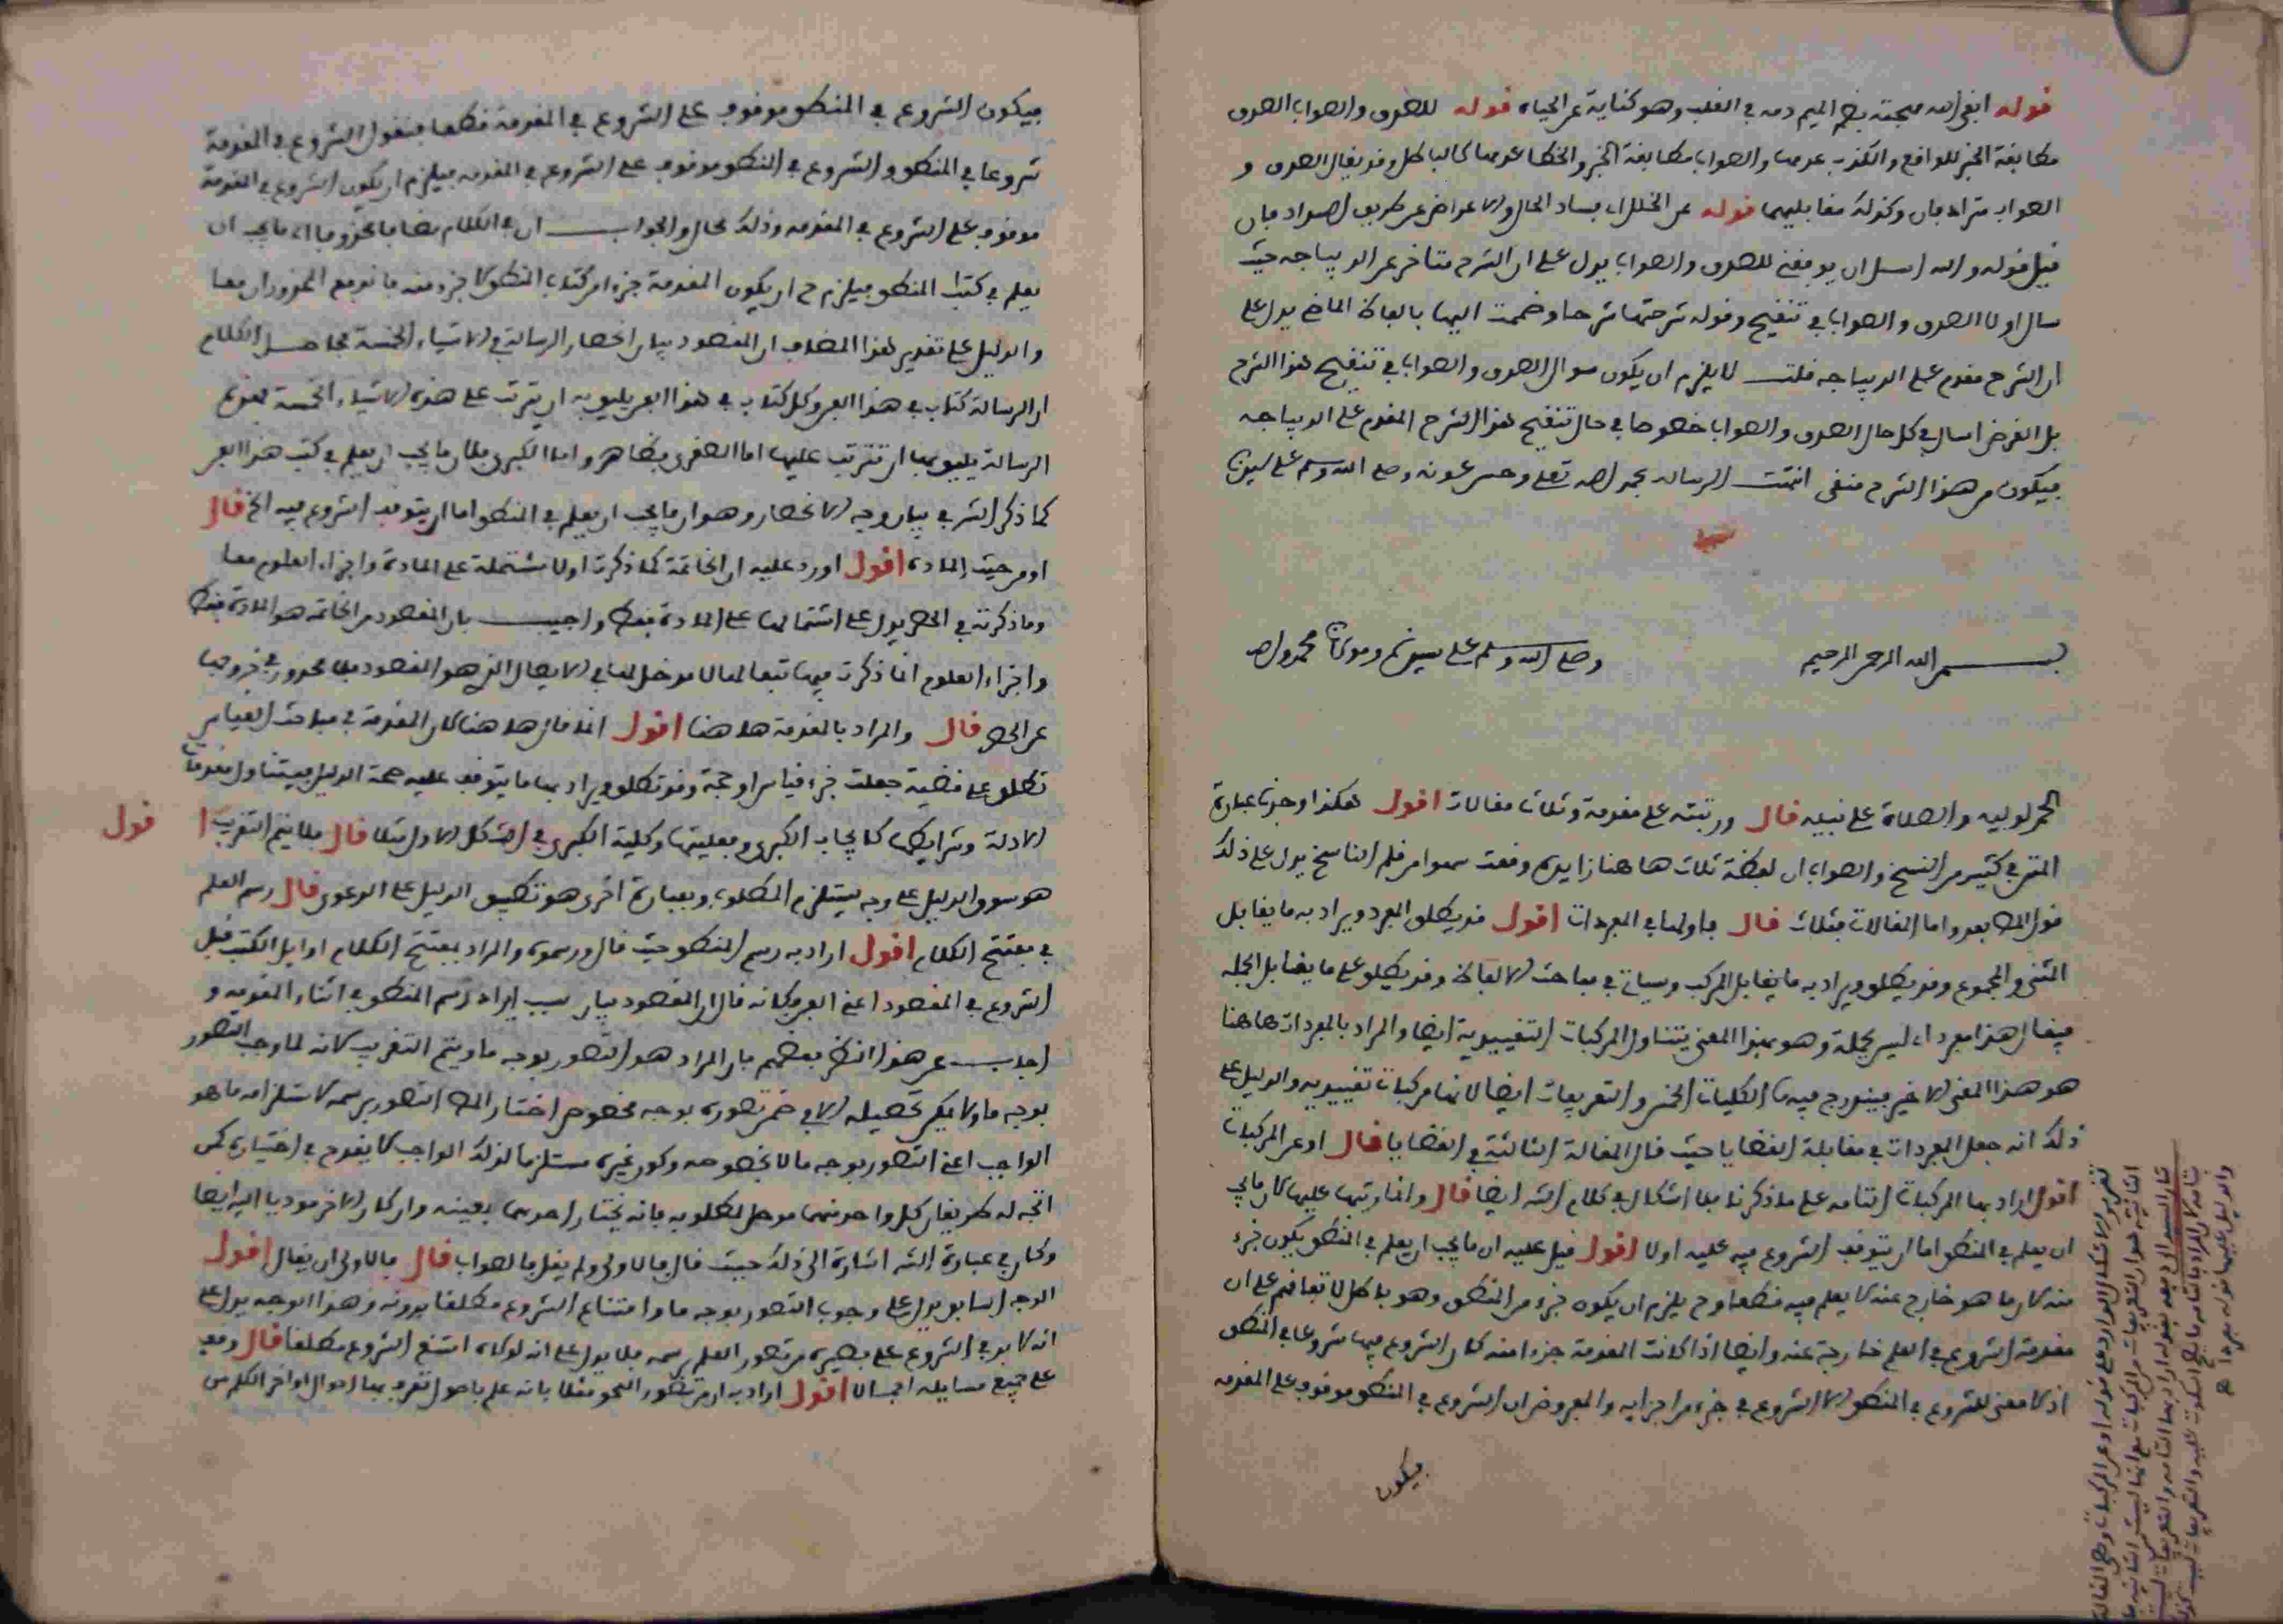 قوله ابقى الله مهجته بضم الميم دمه في القلب وهو كناية عن الحياه قوله للصدق والصواب الصدق
مطابقة الخبر للواقع والكذب عدمها والصواب مطابقة الخبر والخطا عدمها كالباطل وقد يقال الصدق و
الصواب مترادفان وكذلك مقابليهما قوله عن الخلل اي فساد الحال والاعراض عن طريق الصواب فان
قيل قوله والله اسال ان يوفقني للصدق والصواب يدل على ان الشرح متاخر عن الديباجه حيث
سال اولا الصدق والصواب في تنقيح وقوله شرحتها شرحا وضممت اليها بالفاظ الماضي يدل على
ان الشرح مقدم على الديباجه قلت لا يلزم ان يكون سوال الصدق والصواب في تنقيح هذا الشرح
بل الغرض اسال في كل حال الصدق والصواب خصوصا في حال تنقيح هذا الشرح المقدم على الديباجه
فيكون من هذا الشرح منقى انتهت الرساله بحمد الله تعلى وحسن عونه وصلى الله وسلم على سيدنا
بسم الله الرحمن الرحيم وصلى الله وسلم على سيدنا ومولانا محمد واله
الحمد لوليه والصلاة على نبيه قال ورتبته على مقدمة وثلاث مقالات اقول هكذا وجدت عبارة
المتن في كثير من النسخ والصواب ان لفظة ثلاث هاهنا زايدة وقعت سهوا من قلم الناسخ يدل على ذلك
قول المص بعد واما المقالات فثلاث قال فاولها في المفردات اقول قد يطلق المفرد ويراد به ما يقابل
المثنى والمجموع وقد يطلق ويراد به ما يقابل المركب وسياتي في مباحث الالفاظ وقد يطلق على ما يقابل الجمله
فيقال هذا مفرد اي ليس بجملة وهو بهذا المعنى يتناول المركبات التقييدية ايضا والمراد بالمفردات هاهنا
هو هذا المعنى الاخير فيندرج فيها الكليات الخمس والتعريفات ايضا لانها مركبات تقييديه والدليل على
ذلك انه جعل المفردات في مقابلة القضايا حيث قال المقالة الثانية في القضايا قال او عن المركبات
اقول اراد بها المركبات التامه على ما ذكرنا فلا اشكال في كلام الشه ايضا قال وانما رتبها عليها لان ما يجب
ان يعلم في المنطق اما ان يتوقف الشروع فيه عليه اولا اقول قيل عليه ان ما يجب ان يعلم في المنطق يكون جزء
منه لان ما هو خارج عنه لا يعلم فيه قطعا وح يلزم ان يكون جزء من المنطق وهو باطل لاتفاقهم على ان
مقدمة الشروع في العلم خارجة عنه وايضا اذا كانت المقدمة جزءا منه كان الشروع فيها شروعا في المنطق
اذ لا معنى للشروع في المنطق الا الشروع في جزء من اجزايه والمفروض ان الشروع في المنطق موقوف على المقدمه
فيكون
فيكون الشروع في المنطق موقوف على الشروع في المقدمة قطعا فنقول الشروع في المقدمة
شروعا في المنطق والشروع في المنطق موقوف على الشروع في المقدمه فيلزم ان يكون الشروع في المقدمة
موقوف على الشروع في المقدمه وذلك محال والجواب ان في الكلام مضافا محذوفا اي ما يجب ان
يعلم في كتب المنطق فيلزم ح ان يكون المقدمة جزءا من كتاب المنطق لا جزء منه فاندفع المحذوران معا
والدليل على تقدير هذا المضاف ان المقصود بيان انحصار الرسالة في الاشياء الخمسة فحاصل الكلام
ان الرسالة كتاب في هذا الفن وكل كتاب في هذا الفن يليق به ان يترتب على هذه الاشياء الخمسة فهذه
الرسالة يليق بها ان تترتب عليها اما الصغرى فظاهر واما الكبرى فلان ما يجب ان يعلم في كتب هذا الفن
كما ذكر الشه في بيان وجه الانحصار وهو ان ما يجب ان يعلم في المنطق اما ان يتوقف الشروع فيه الخ قال
او من حيث المادة اقول اورد عليه ان الخاتمة كما ذكرت اولا مشتملة على المادة واجزاء العلوم معا
وما ذكرته في الحصر يدل على اشتمالها على المادة فقط واجيب بان المقصود من الخاتمه هو المادة فقط
واجزاء العلوم انما ذكرت فيها تبعا لها لا مدخل لها في الايصال الذي هو المقصود فلا محذور في خروجها
عن الحصر قال والمراد بالمقدمة هاهنا اقول انما قال هاهنا لان المقدمة في مباحث القياس
تطلق على قضية جعلت جزء قياس او حجة وقد تطلق ويراد بها ما يتوقف عليه صحة الدليل فيتناول مقدمات
الادلة وشرايطها كايجاب الكبرى وفعليتها وكلية الكبرى في الشكل الاول مثلا قال فلا يتم التقريب اقول
هو سوق الدليل على وجه يستلزم المطلوب وبعبارة اخرى هو تطبيق الدليل على الدعوى قال رسم العلم
في مفتتح الكلام اقول اراد به رسم المنطق حيث قال ورسموه والمراد بمفتتح الكلام اوايل الكتب قبل
الشروع في المقصود اعني الفن وكانه قال ان المقصود بيان سبب ايراد رسم المنطق في اثناء المقدمه و
اجاب عن هذا النظر بعضهم بان المراد هو التصور بوجه ما ويتم التقريب لانه لما وجب التصور
بوجه ما ولا يمكن تحصيله الا في ضمن تصوره بوجه مخصوص اختار المص التصور برسمه لاستلزامه ما هو
الواجب اعني التصور بوجه ما لا بخصوصه وكون غيره مستلزما لذلك الواجب لا يقدح في اختياره كمن
اتجه له طريقان كل واحد منهما موصل لمطلوبه فانه يختار احدهما بعينه وان كان الاخر موديا اليه ايضا
وكان في عبارة الشه اشارة الى ذلك حيث قال فالاولى ولم يقل فالصواب قال فالاولى ان يقال اقول
الوجه السابق يدل على وجوب التصور بوجه ما وامتناع الشروع مطلقا بدونه وهذا الوجه يدل على
انه لا بد في الشروع على بصيرة من تصور العلم برسمه فلا يدل على انه لولاه امتنع الشروع مطلقا قال وقف
على جميع مسايله اجمالا اقول اراد به ان من تصور النحو مثلا بانه علم باصول تعرف بها احوال اواخر الكلم من